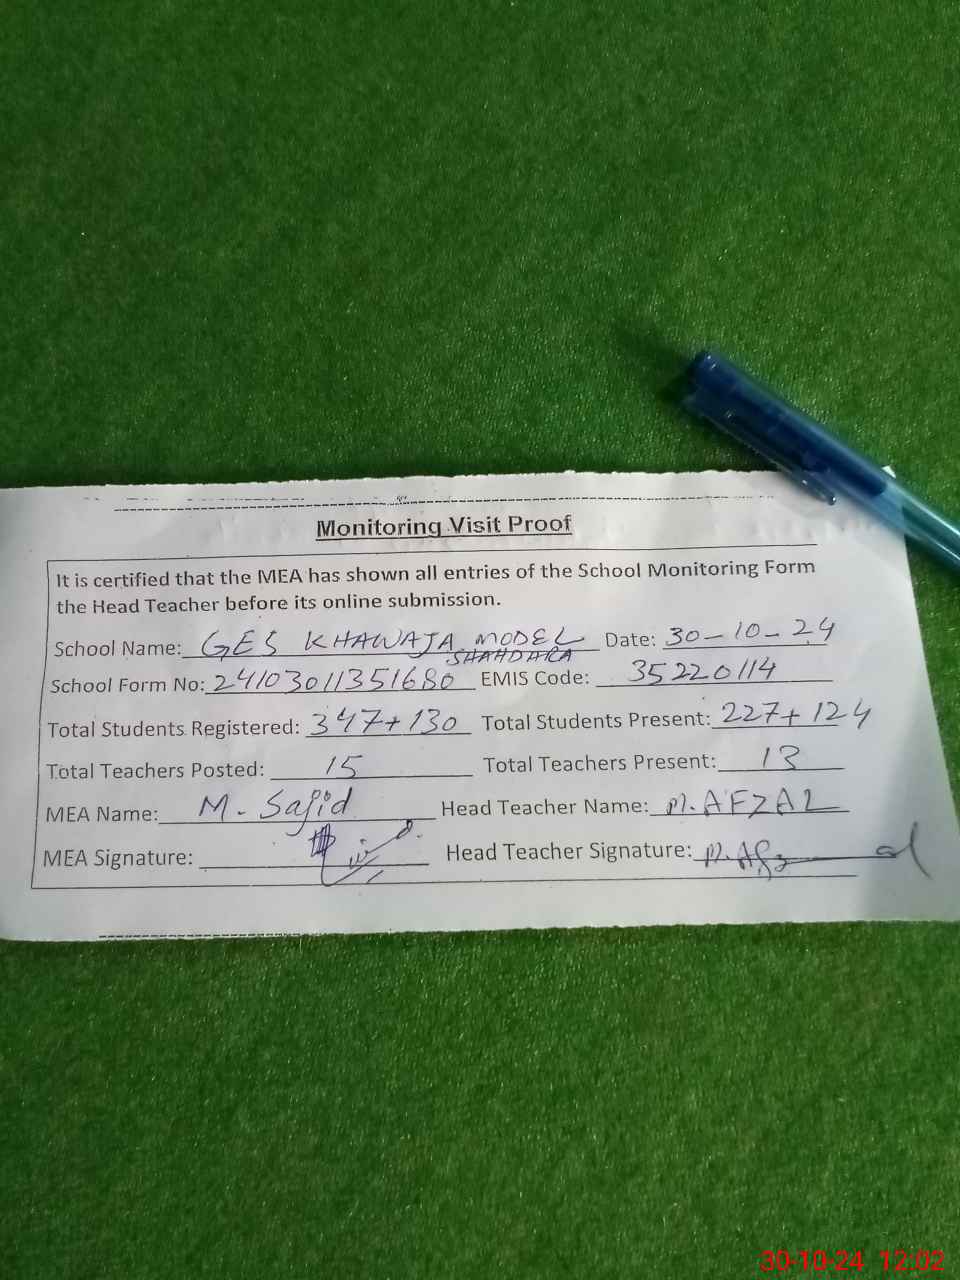 Monitoring Visit Proof
It is certified that the MEA has shown all entries of the School Monitoring Form
the Head Teacher before its online submission.
School Name: GES KHAWAJA MODEL Date: 30-10-24
SHAHDARA
School Form No: 24103011351680 EMIS Code: 35220114
Total Students Registered: 347+130 Total Students Present: 227+124
Total Teachers Posted: 15 Total Teachers Present: 13
MEA Name: M. Sajid Head Teacher Name: M. AFZAL
MEA Signature: Head Teacher Signature:
30-10-24 12:02